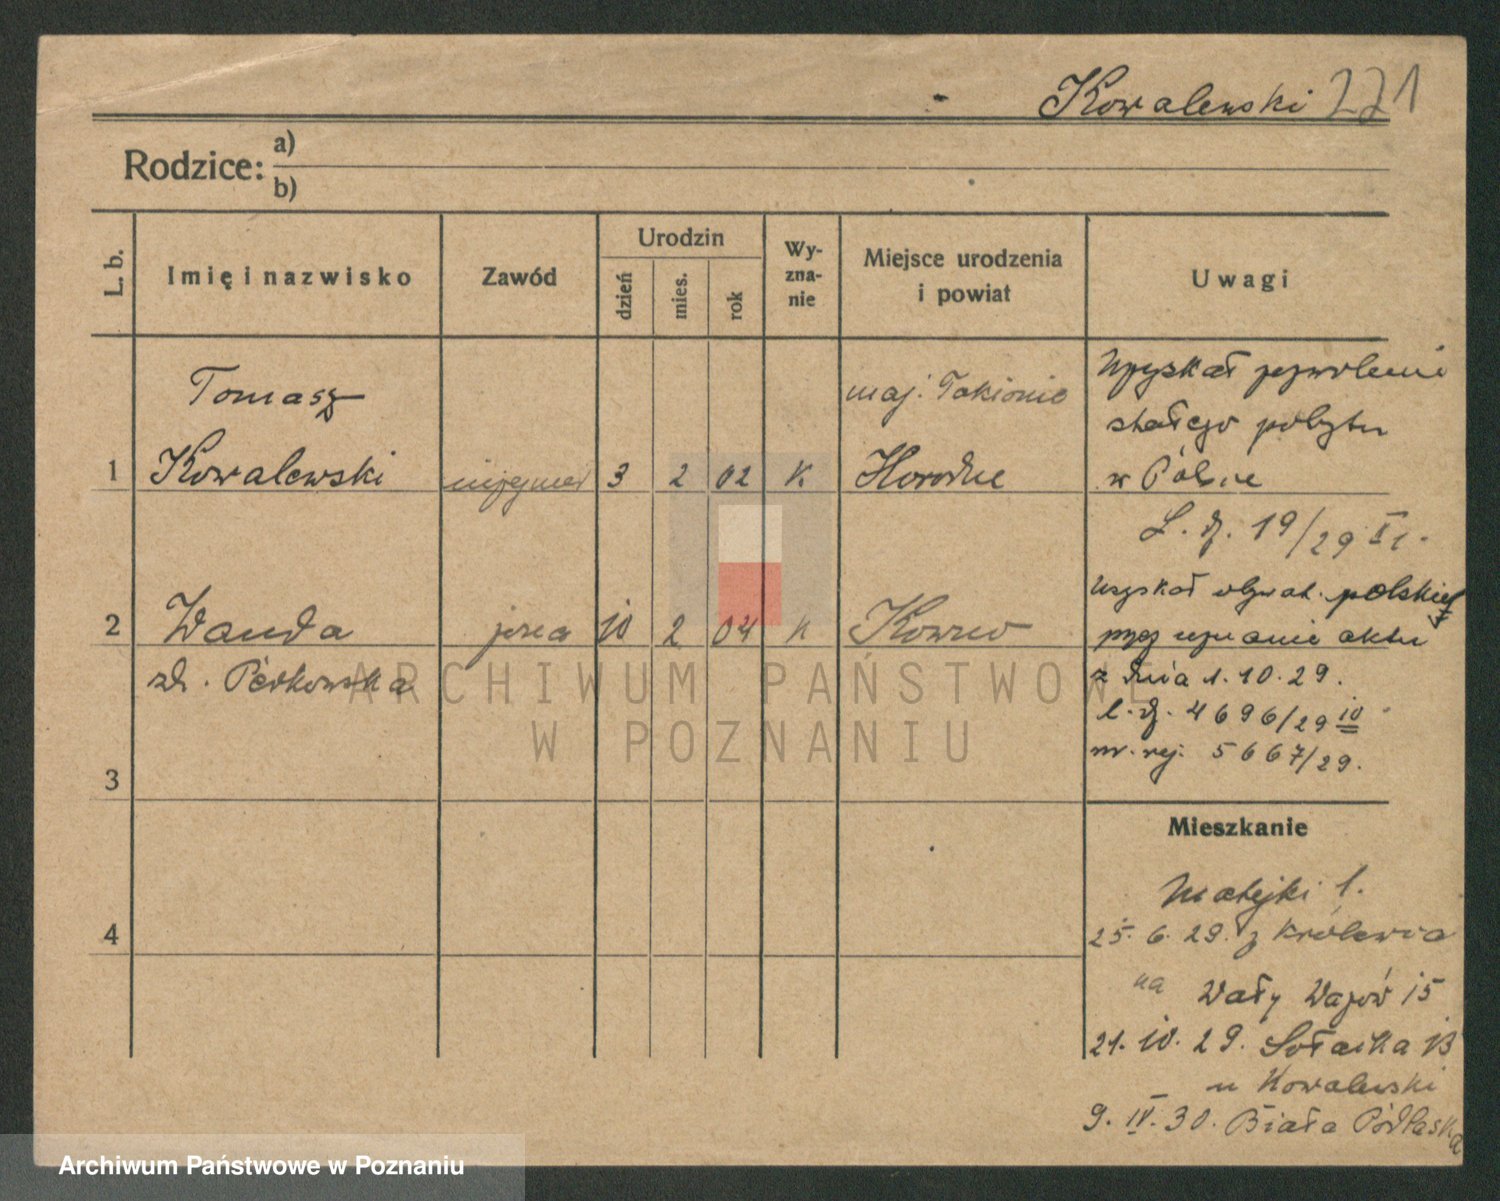 Kowalewski 221
Rodzice: a)
b)
L. b.
Imię i nazwisko
Zawód
Urodzin
dzień
mies.
rok
Wy-
zna-
nie
Miejsce urodzenia
i powiat
Uwagi
Tomasz
1 Kowalewski 3 2 02 K
maj.
Uzyskał pozwolenie
stałego pobytu
w Polsce
L. dz. 19/29 VI.
2 Wanda 10 2 04 K Kowno
zd.
uzyskał obywat. polskie
przez uznanie aktu
z dnia 1.10.29.
l. dz. 4696/29 IV
nr. rej. 5667/29.
3
4
Mieszkanie
Matejki 1.
25. 6. 29. z Królewca
na Wały Wazów 15
21. 10. 29. Sołacka 13
u Kowalewski
9. IV. 30. Biała Podlaska
ARCHIWUM PAŃSTWOWE
W POZNANIU
Archiwum Państwowe w Poznaniu